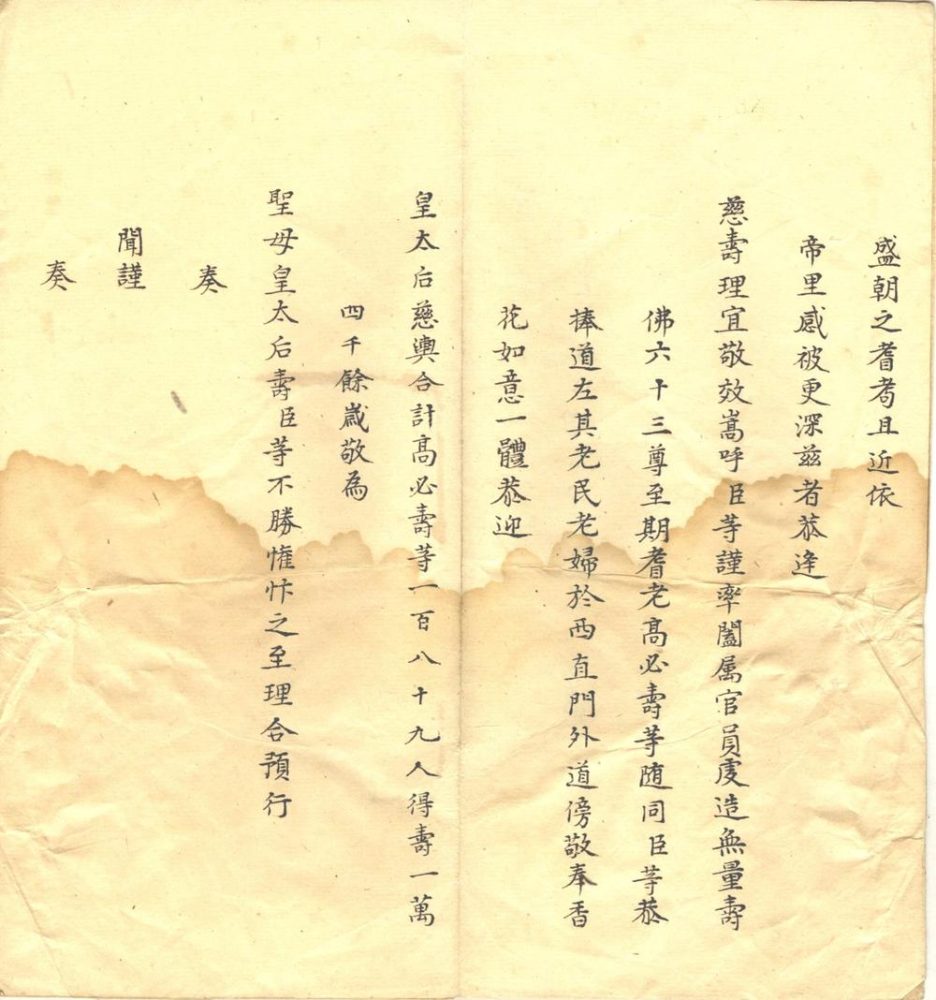 盛朝之耆耇且近依
帝里感被更深兹者恭逢
慈壽理宜敬效嵩呼臣等謹率闔属官員虔造無量壽
佛六十三尊至期耆老高必壽等随同臣等恭
捧道左其老民老婦於西直門外道傍敬奉香
花如意一體恭迎
皇太后慈輿合計高必壽等一百八十九人得壽一萬
四千餘歳敬為
聖母皇太后壽臣等不勝懽忭之至理合預行
奏
聞謹
奏